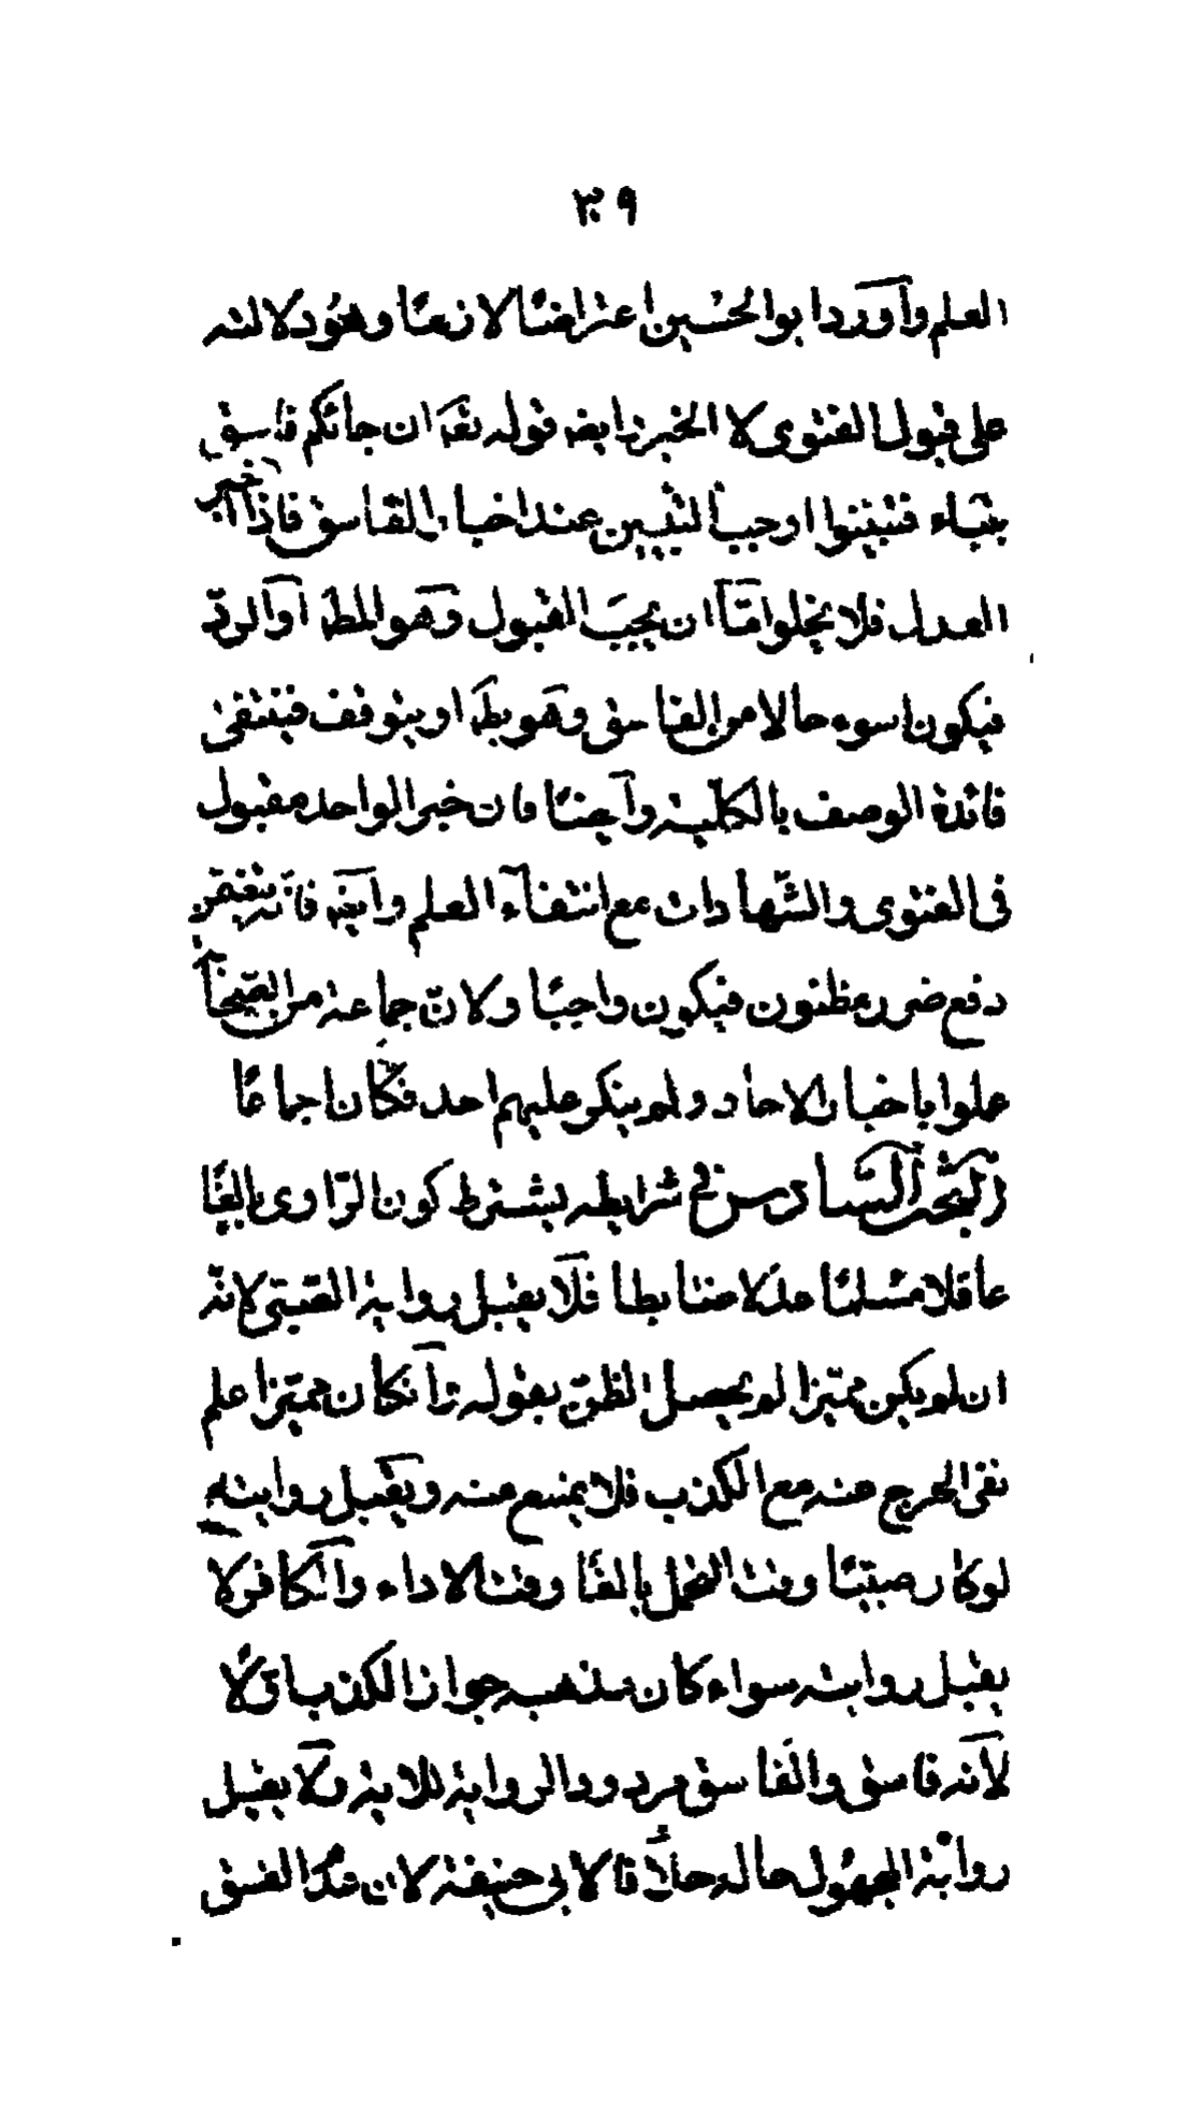 ٣٩
العلم وأورد ابو الحسين اعتراضًا لازمًا وهو دلالته
على قبول الفتوى لا الخبر وايضا قوله تعه ان جائكم فاسق
بنباء فتبينوا اوجب التبين عند اخبار الفاسق فاذا اخبر
العدل فلا يخلوا امّا ان يجب القبول وهو المطه او الردّ
فيكون اسوء حالا من الفاسق وهو بطه او يتوقف فينتفى
فائدة الوصف بالكليّة وايضًا فان خبر الواحد مقبول
فى الفتوى والشّهادات مع انتفاء العلم وايضه فانّه يتضمّن
دفع ضرر مظنون فيكون واجبًا ولانّ جماعة من الصّحابة
عملوا باخبار الاحاد ولم ينكر عليهم احد فكان اجماعًا
البحث السّادس فى شرايطه يشترط كون الرّاوى بالغًا
عاقلا مسلمًا عدلا ضابطا فلا يقبل رواية الصّبىّ لانّه
ان لم يكن مميّزا لم يحصل الظنّ بقوله وانكان مميّزا علم
نفى الحرج عنه مع الكذب فلا يمنع منه ويقبل روايته
لو كان صبيًّا وقت التحمل بالغًا وقت الاداء والكافر لا
يقبل روايته سواء كان مذهبه جواز الكذب اولا
لانّه فاسق والفاسق مردود الرواية للاية ولا يقبل
رواية المجهول حاله خلافا لابى حنيفة لان عدم الفسق